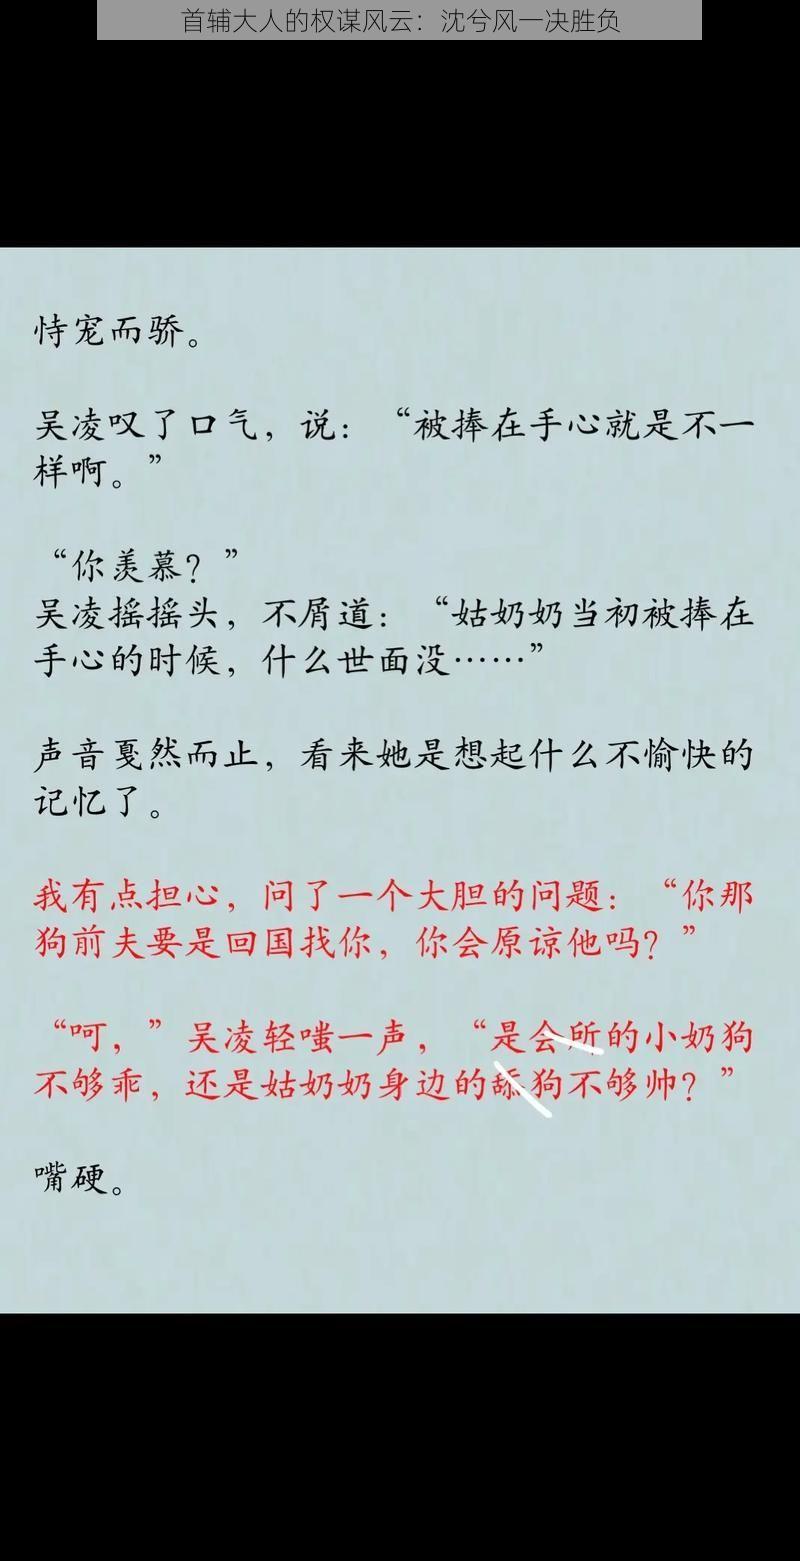 首辅大人的权谋风云：沈兮风一决胜负
恃宠而骄。
吴凌叹了口气，说：“被捧在手心就是不一
样啊。”
“你羡慕？”
吴凌摇摇头，不屑道：“姑奶奶当初被捧在
手心的时候，什么世面没……”
声音戛然而止，看来她是想起什么不愉快的
记忆了。
我有点担心，问了一个大胆的问题：“你那
狗前夫要是回国找你，你会原谅他吗？”
“呵，”吴凌轻嗤一声，“是会所的小奶狗
不够乖，还是姑奶奶身边的舔狗不够帅？”
嘴硬。